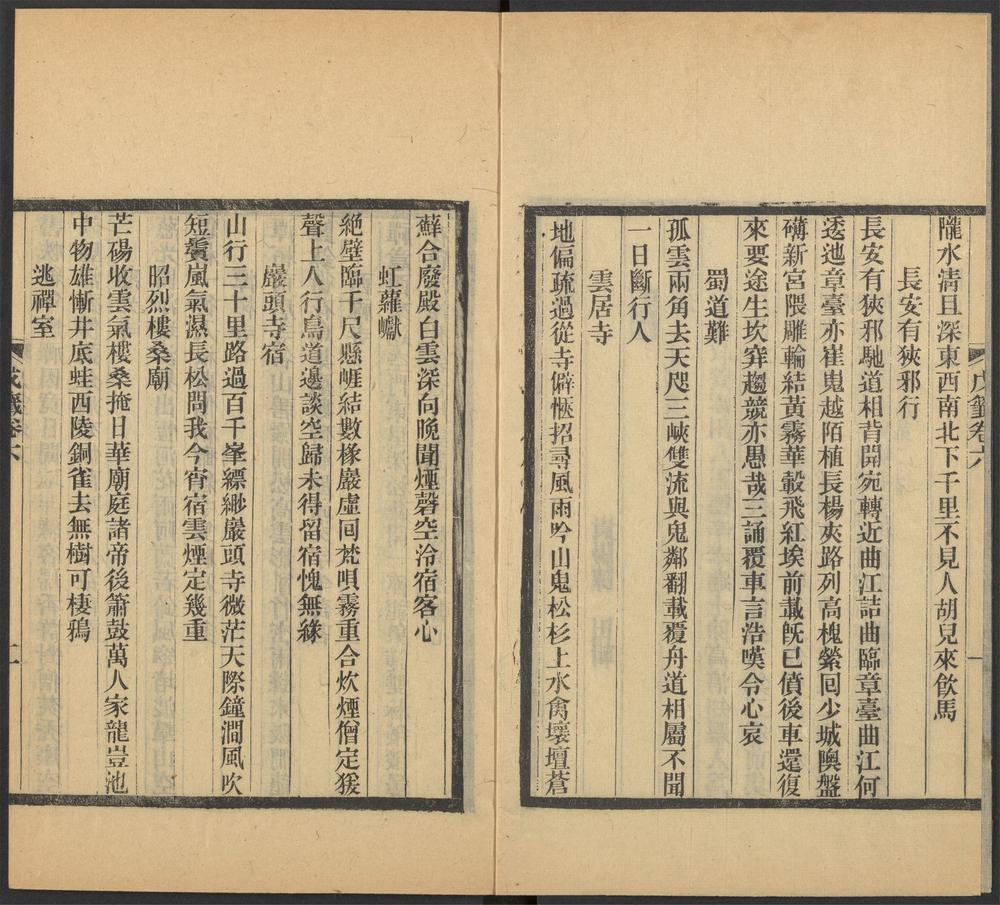 隴水清且深東西南北下千里不見人胡兒來飲馬
長安有狹邪行
長安有狹邪馳道相背開宛轉近曲江詰曲臨章臺曲江何
逶迆章臺亦崔嵬越陌植長楊夾路列高槐縈回少城隩盤
礴新宮隈雕輪結黃霧華轂飛紅埃前載旣已僨後車還復
來要途生坎穽趨競亦愚哉三誦覆車言浩嘆令心哀
蜀道難
孤雲兩角去天咫三峽雙流與鬼鄰翻載覆舟道相屬不聞
一日斷行人
雲居寺
地偏疏過從寺僻愜招尋風雨吟山鬼松杉上水禽壞壇蒼
戊籤卷六
一
蘚合廢殿白雲深向晚聞煙磬空泠宿客心
虹蘿巘
絶壁臨千尺懸崕結數椽巖虛回梵唄霧重合炊煙僧定猨
聲上人行鳥道邊談空歸未得留宿愧無緣
巖頭寺宿
山行三十里路過百千峯縹緲巖頭寺微茫天際鐘澗風吹
短鬢嵐氣濕長松問我今宵宿雲煙定幾重
昭烈樓桑廟
芒碭收雲氣樓桑掩日華廟庭諸帝後簫鼓萬人家龍豈池
中物雄慚井底蛙西陵銅雀去無樹可棲鴉
逃禪室
戊籤卷六
二